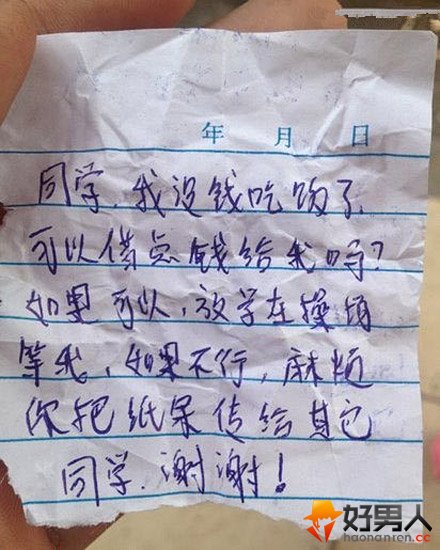 年 月 日
同学,我没钱吃饭了,
可以借点钱给我吗?
如果可以,放学在操场
等我,如果不行,麻烦
你把纸条传给其它
同学.谢谢!
好男人
haonanren.cc